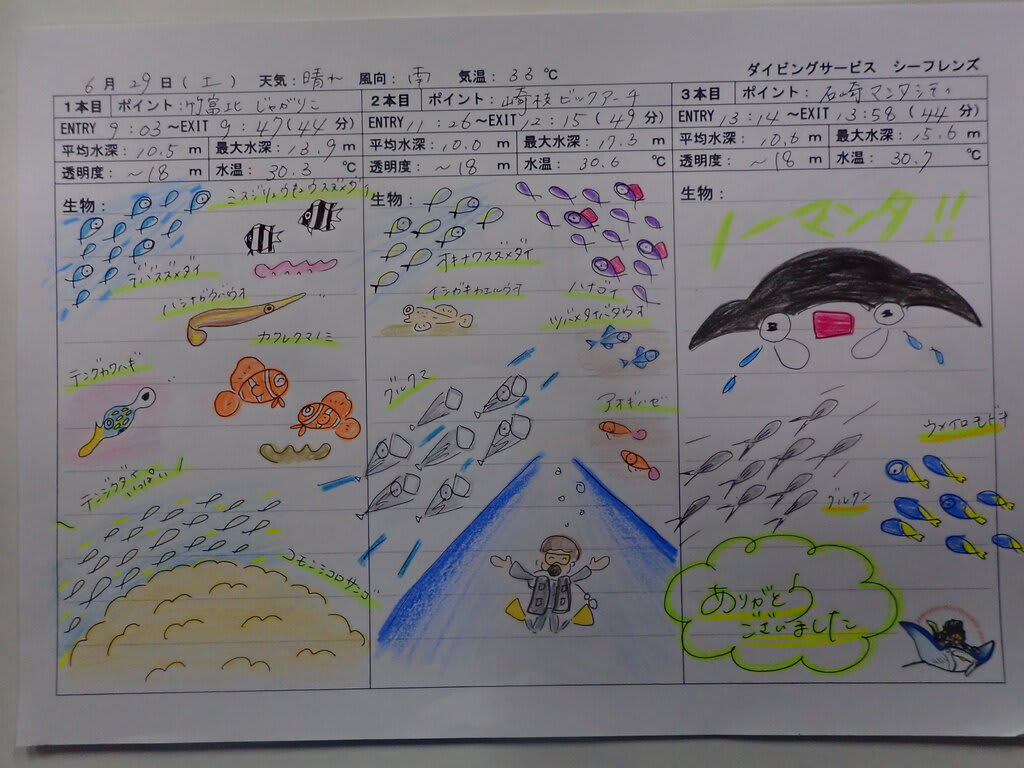 6月29日(土) 天気:晴れ 風向:南 気温:33℃
ダイビングサービス シーフレンズ
1本目 ポイント:竹富北 じゃがりこ
ENTRY 9:03～EXIT 9:47(44分)
平均水深:10.5m 最大水深:13.9m
透明度:～18m 水温:30.3℃
生物:
ミスジリュウキュウスズメダイ
デバスズメダイ
ハシナガウバウオ
カクレクマノミ
テングカワハギ
テンジクダイ
いっぱい!
コモンシコロサンゴ
2本目 ポイント:崎枝ビックアーチ
ENTRY 11:26～EXIT 12:15(49分)
平均水深:10.0m 最大水深:17.3m
透明度:～18m 水温:30.6℃
生物:
オキナワスズメダイ
イシガキカエルウオ
ハナゴイ
ツバメタナバタウオ
グルクマ
アオギハゼ
3本目 ポイント:石崎マンタシティ
ENTRY 13:14～EXIT 13:58(44分)
平均水深:10.6m 最大水深:15.6m
透明度:～18m 水温:30.7℃
生物:
ノーマンタ!!
ウメイロモドキ
グルクン
ありがとう
ございました